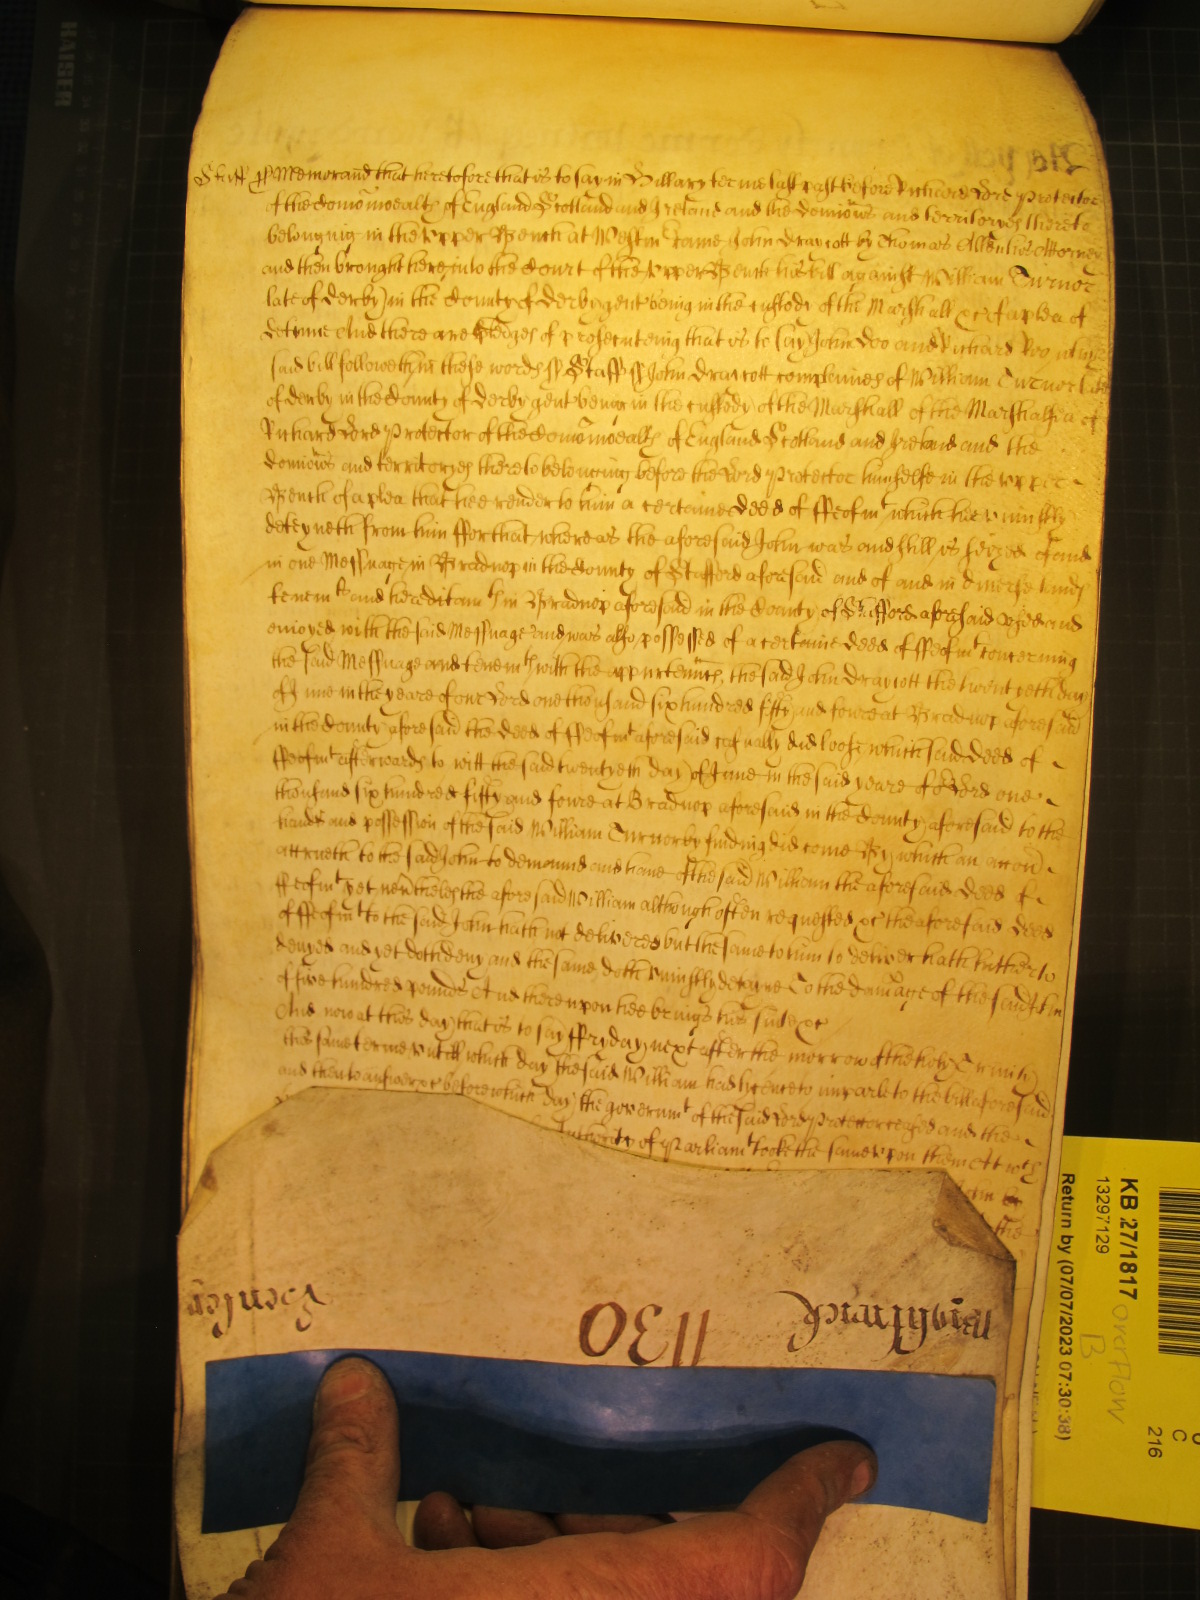 Staff ss Memorand that heretofore that is to say in Hillary terme last past before Richard Lord Protector
of the Comonwealth of England Scotland and Ireland and the dominions and territoryes thereto
belonging in the Vpper Bench at Westm Came John Draycott by Thomas Allen his Attorney
and then brought here into the Court of the Vpper Bench his bill against William Turnor
late of Derby in the County of Derby gent being in the custody of the Marshall &c of a plea of
detinue And there are pledges of prosecuteing that is to say John Doo and Richard Roo which
said bill followeth in these words ss Staff ss John Draycott complaines of William Turnor late
of Derby in the County of Derby gent being in the custody of the Marshall of the Marshalsea of
Richard Lord Protector of the Comonwealth of England Scotland and Ireland and the
dominions and territoryes thereto belonging before the Lord Protector himselfe in the vpper
Bench of a plea that hee render to him a certaine deed of ffeofmt which hee vniustly
deteyneth from him ffor that whereas the aforesaid John was and still is seized of and
in one Messuage in Bradnop in the County of Stafford aforesaid and of and in diverse lands
tenemts and hereditamts in Bradnop aforesaid in the County of Stafford aforesaid vsed and
enioyed with the said Messuage and was also possessed of a certaine deed of ffeofmt concerning
the said Messuage and tenemts with the appurtenncs the said John Draycott the twentyeth day
of June in the yeare of our Lord one thousand six hundred fifty and fowre at Bradnop aforesaid
in the County aforesaid the deed of ffeofmt aforesaid casually did loose which said deed of
ffeofmt afterwards to witt the said twentyeth day of June in the said yeare of or Lord one
thousand six hundred fifty and fowre at Bradnop aforesaid in the County aforesaid to the
hands and possession of the said William Turnor by finding did come By which an accon
accrueth to the said John to demaund and have of the said William the aforesaid deed of
ffeofmt yet nevertheles the aforesaid William although often requested &c the aforesaid deed
of ffeofmt to the said John hath not delivered but the same to him to deliver hath hitherto
denyed and yet doth deny and the same doth vniustly deteyne To the damage of the said John
of five hundred pounds And thereupon hee brings his suite &c
And now at this day that is to say ffryday next after the morrow of the holy Trinity
this same terme vntill which day the said William had lycence to imparle to the bill aforesaid
and then to answer &c before which day the governmt of the said Lord Protector ceased and the
Authority of Parliamt tooke the same vpon them At wch
the
Bightwick 1130 Henley
KAISER
KB 27/1817
13297129
Return by (07/07/2023 07:30:38)
overflow
B
C
216